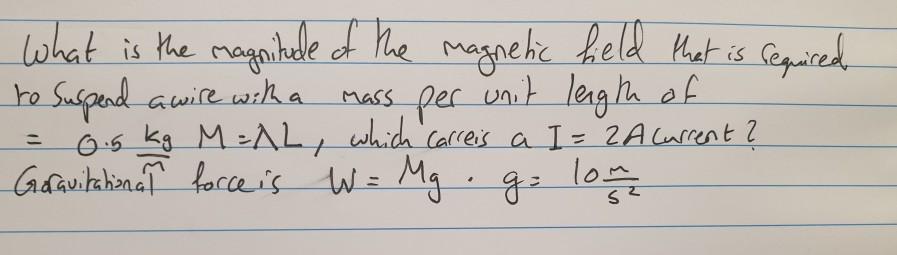 What is the magnitude of the magnetic field that is required
to suspend a wire with a mass per unit length of
= 0.5 kg/m M = ΛL, which carreis a I = 2A current?
Goravitational force is W = Mg . g = 10 m/s²